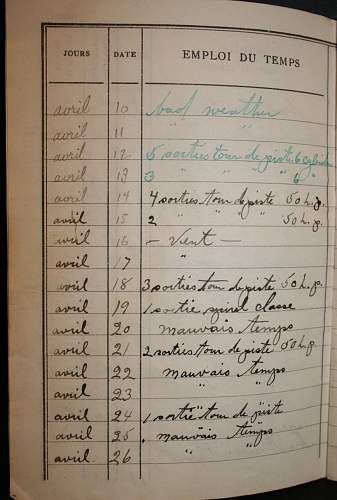 JOURS DATE EMPLOI DU TEMPS
avril 10 bad weather
avril 11 " "
avril 12 5 sorties tour de piste 6
avril 13 3 " " " " 6 "
avril 14 4 sorties tour de piste 50 h.p.
avril 15 2 " " " " 50 h.p.
avril 16 – Vent –
avril 17 "
avril 18 3 sorties tour de piste 50 h.p.
avril 19 1 sortie classe
avril 20 mauvais temps
avril 21 2 sorties tour de piste 50 h.p.
avril 22 mauvais temps
avril 23 " "
avril 24 1 sortie tour de piste
avril 25 mauvais temps
avril 26 " "